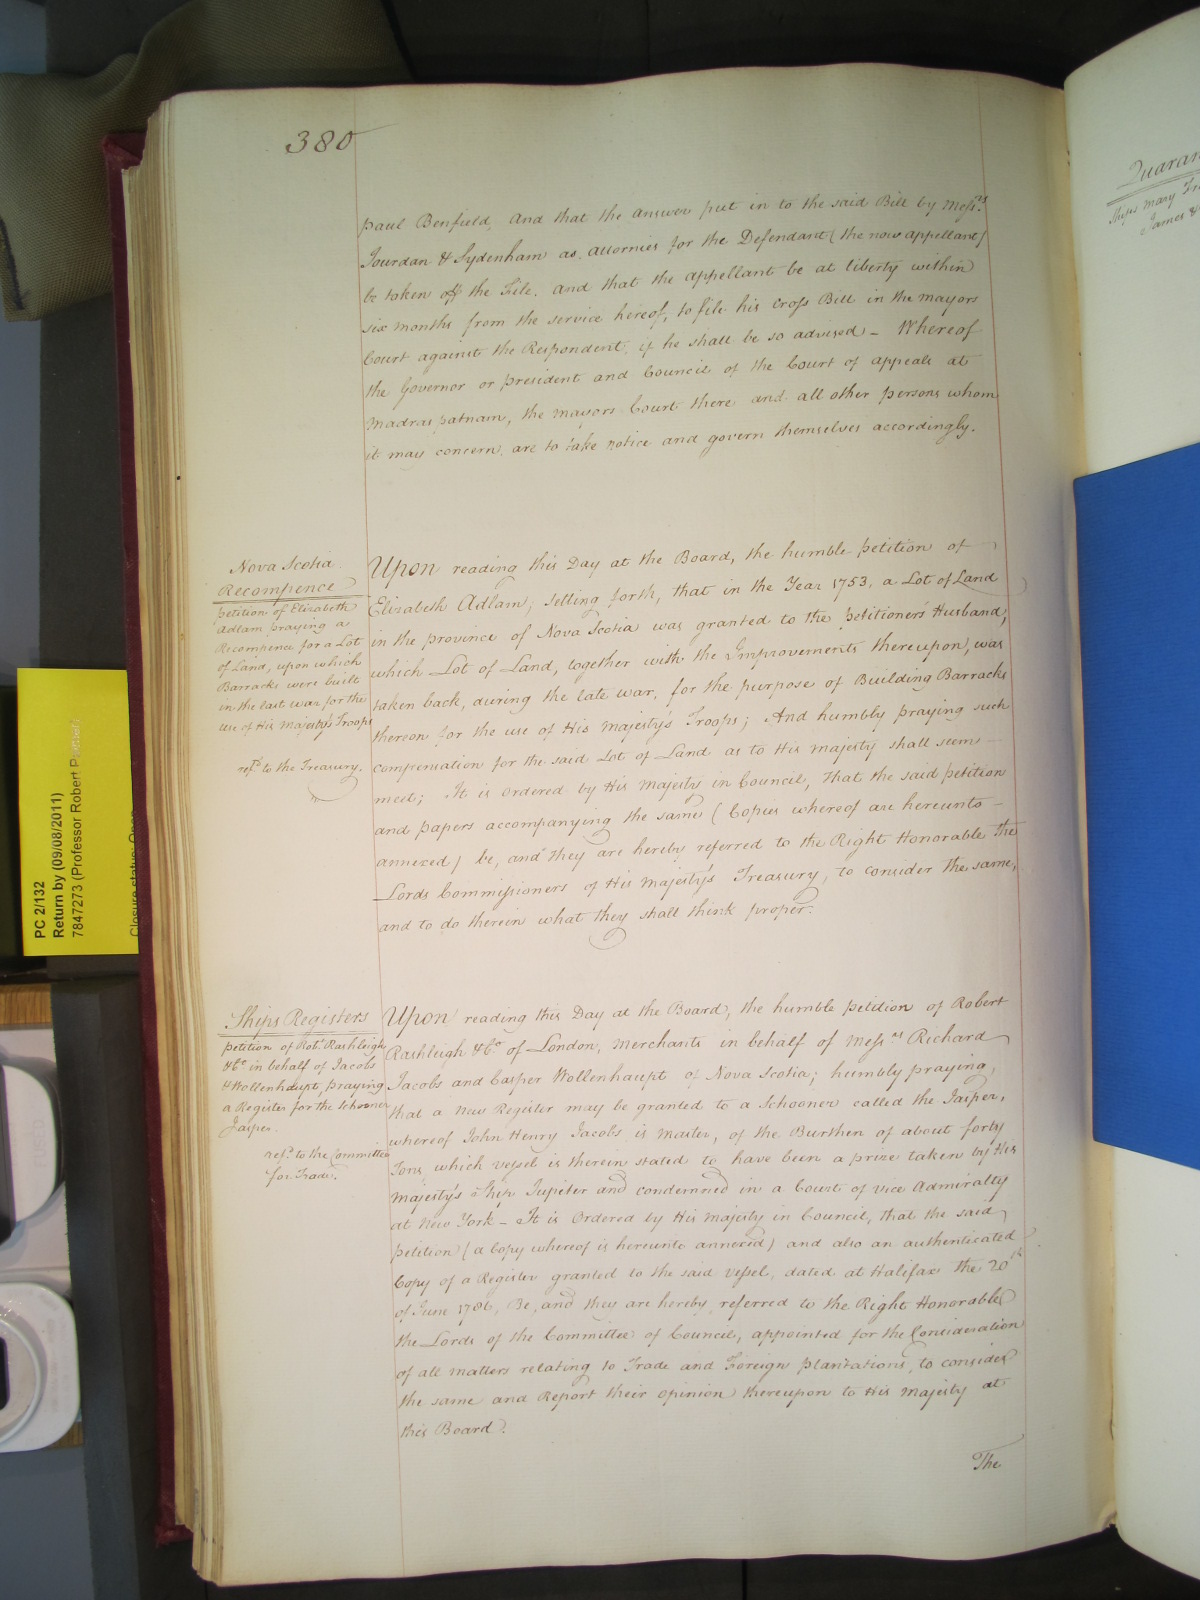 380
paul Benfield, and that the answer put in to the said Bill by Mess.rs
Jourdan & Sydenham as attornies for the Defendant (the now appellant)
be taken off the File, and that the appellant be at liberty within
six months from the service hereof, to file his Cross Bill in the mayors
Court against the Respondent, if he shall be so advised – Whereof
the Governor or president and Council of the Court of appeals at
Madraspatnam, the mayors Court there and all other persons whom
it may concern, are to take notice and govern themselves accordingly.
Nova Scotia
Recompence
petition of Elizabeth
Adlam praying a
Recompence for a Lot
of Land, upon which
Barracks were built
in the last war for the
use of His Majesty's Troops
ref.d to the Treasury.
Upon reading this Day at the Board, the humble petition of
Elizabeth Adlam; setting forth, that in the Year 1753, a Lot of Land
in the province of Nova Scotia was granted to the petitioners Husband,
which Lot of Land, together with the Improvements thereupon, was
taken back, during the late war, for the purpose of Building Barracks
thereon for the use of His Majesty's Troops; And humbly praying such
compensation for the said Lot of Land as to His Majesty shall seem
meet; It is ordered by His Majesty in Council, that the said petition
and papers accompanying the same (Copies whereof are hereunto
annexed) be, and they are hereby referred to the Right Honorable the
Lords Commissioners of His Majesty's Treasury, to consider the same,
and to do therein what they shall think proper.
Ships Registers
petition of Rob.t Rashleigh
& C.o in behalf of Jacobs
& Wollenhaupt, praying
a Register for the Schooner
Jasper.
ref.d to the Committee
for Trade.
Upon reading this Day at the Board, the humble petition of Robert
Rashleigh & C.o of London, Merchants in behalf of Mess.rs Richard
Jacobs and Casper Wollenhaupt of Nova Scotia; humbly praying,
that a new Register may be granted to a Schooner called the Jasper,
whereof John Henry Jacobs is master, of the Burthen of about forty
Tons, which vessel is therein stated to have been a prize taken by His
Majesty's Ship Jupiter and condemned in a Court of Vice Admiralty
at New York – It is Ordered by His Majesty in Council, that the said
petition (a Copy whereof is hereunto annexed) and also an authenticated
Copy of a Register granted to the said Vessel, dated at Halifax the 20th
of June 1786, Be, and they are hereby referred to the Right Honorable
the Lords of the Committee of Council, appointed for the Consideration
of all matters relating to Trade and Foreign plantations, to consider
the same and Report their opinion thereupon to His Majesty at
this Board.
The
Quaran
Ships Mary
James &
PC 2/132
Return by (09/08/2011)
7847273 (Professor Robert
Closure status: Open